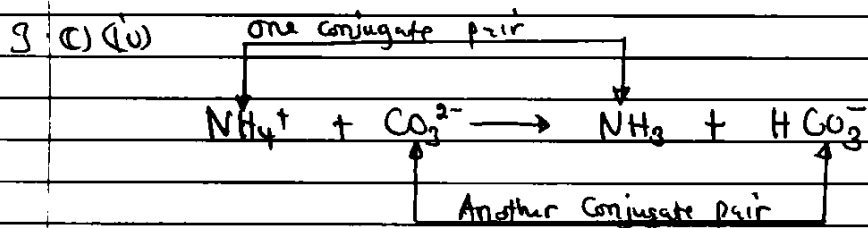 3 (c) (iv) one conjugate pair
NH₄⁺ + CO₃²⁻ ⟶ NH₃ + HCO₃⁻
Another Conjugate pair